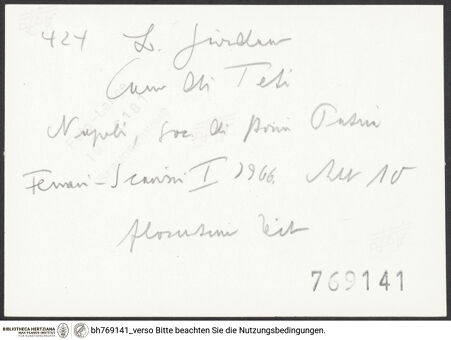 424 L. Giordano
Cena di Teti
Napoli, Soc. di Storia Patria
Ferrari-Scavizzi I 1966. Abb 10
florentini Zeit
769141
BIBLIOTHECA HERTZIANA
MAX-PLANCK-INSTITUT
FÜR KUNSTGESCHICHTE
bh769141_verso Bitte beachten Sie die Nutzungsbedingungen.